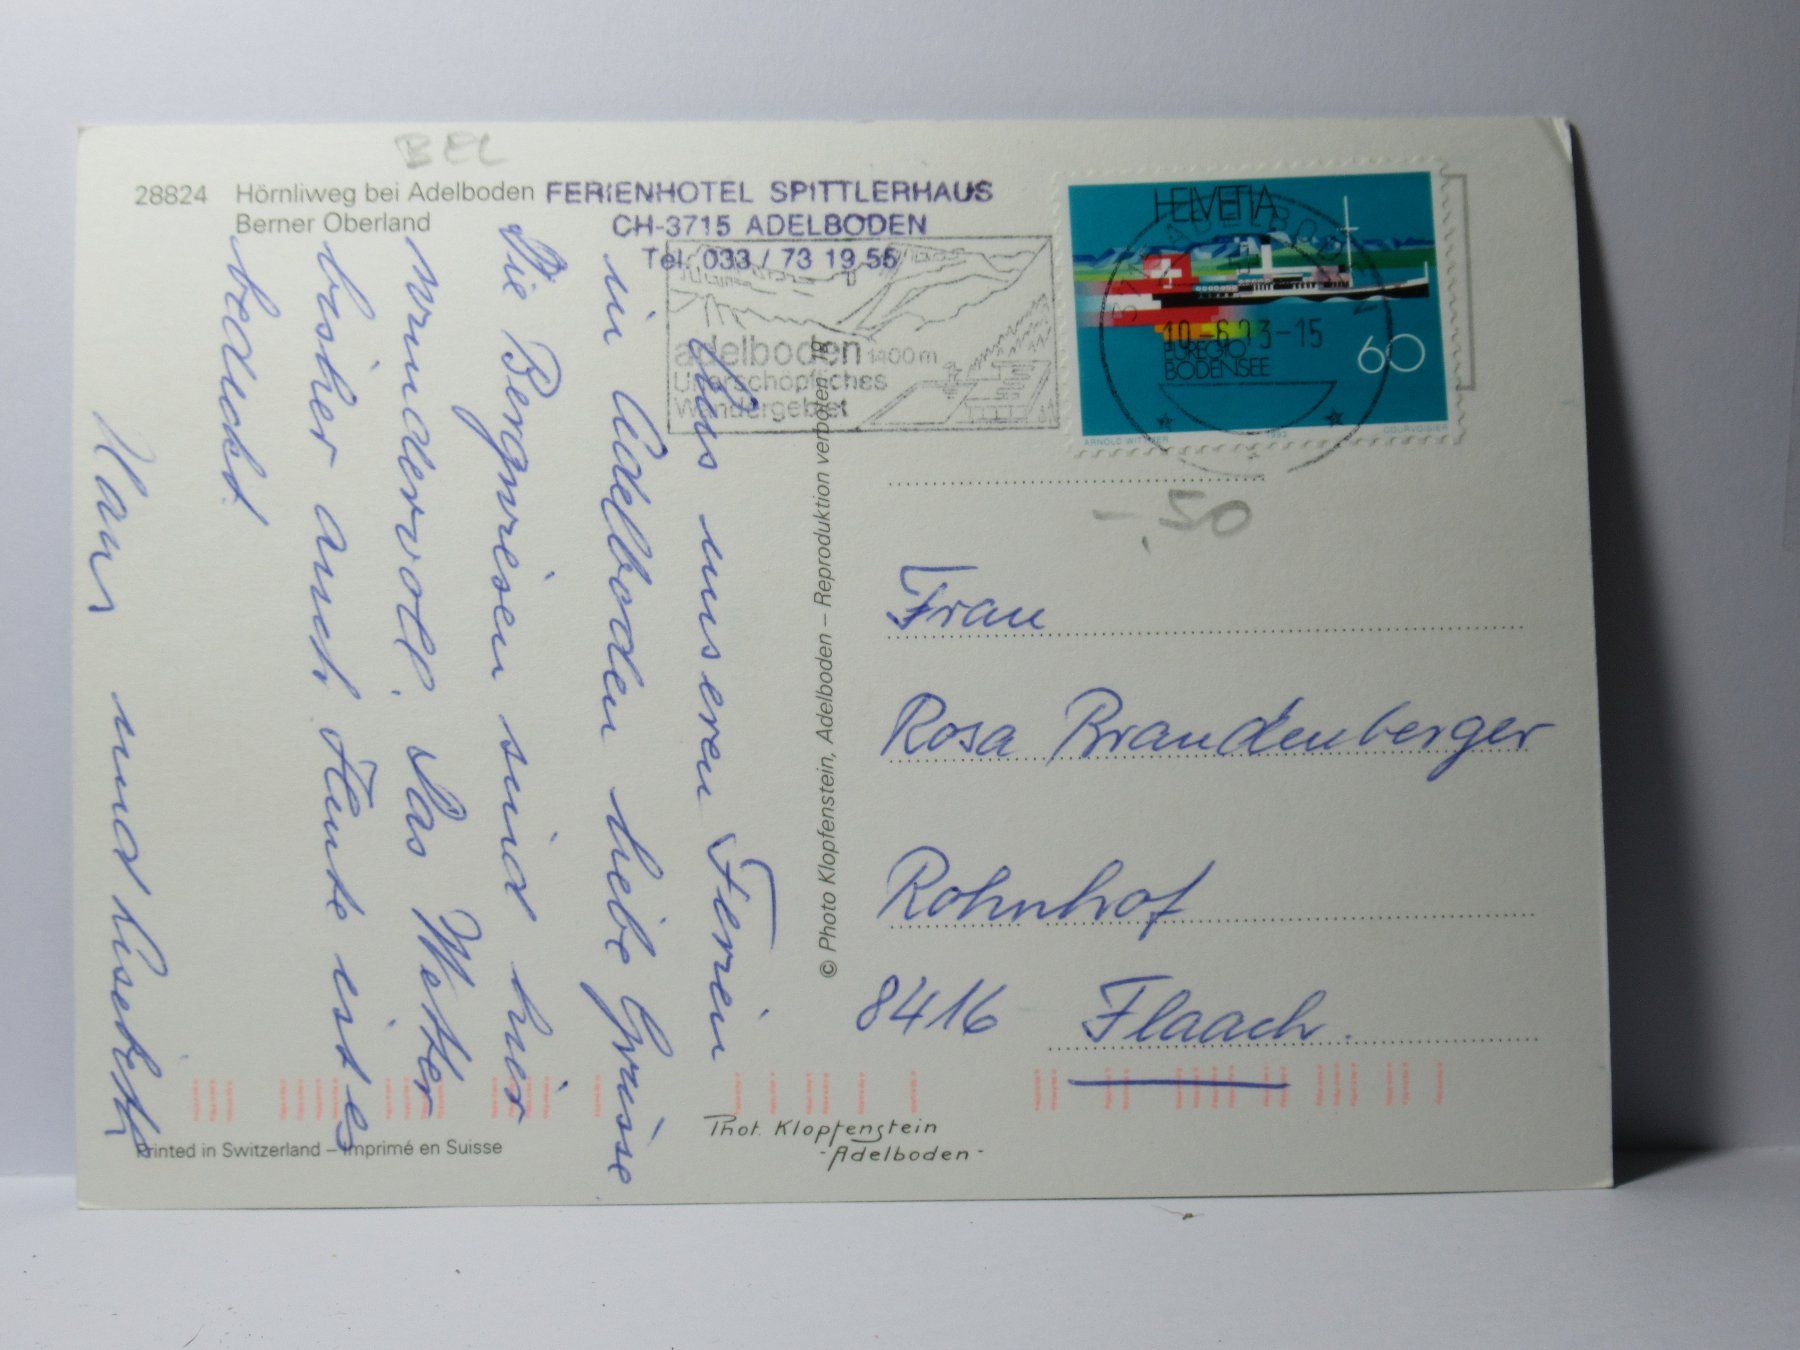 BEL
28824 Hörnliweg bei Adelboden
Berner Oberland
FERIENHOTEL SPITTLERHAUS
CH-3715 ADELBODEN
Tel. 033 / 73 19 55
adelboden 1400 m
Unerschöpfliches
Wandergebiet
HELVETIA
3715 ADELBODEN
10.-6.93-15
EUREGIO
BODENSEE
60
ARNOLD WITTMER 1993 COURVOISIER
-.50
Aus unseren Ferien
in Adelboden liebe Grüsse
Die Bergwiesen sind hier
wundervoll. Das Wetter
bisher auch. Heute ist es
bedeckt.
und Lisebeth
© Photo Klopfenstein, Adelboden – Reproduktion verboten
Frau
Rosa Brandenberger
Rohnhof
8416 Flaach.
Phot. Klopfenstein
- Adelboden -
Printed in Switzerland – Imprimé en Suisse